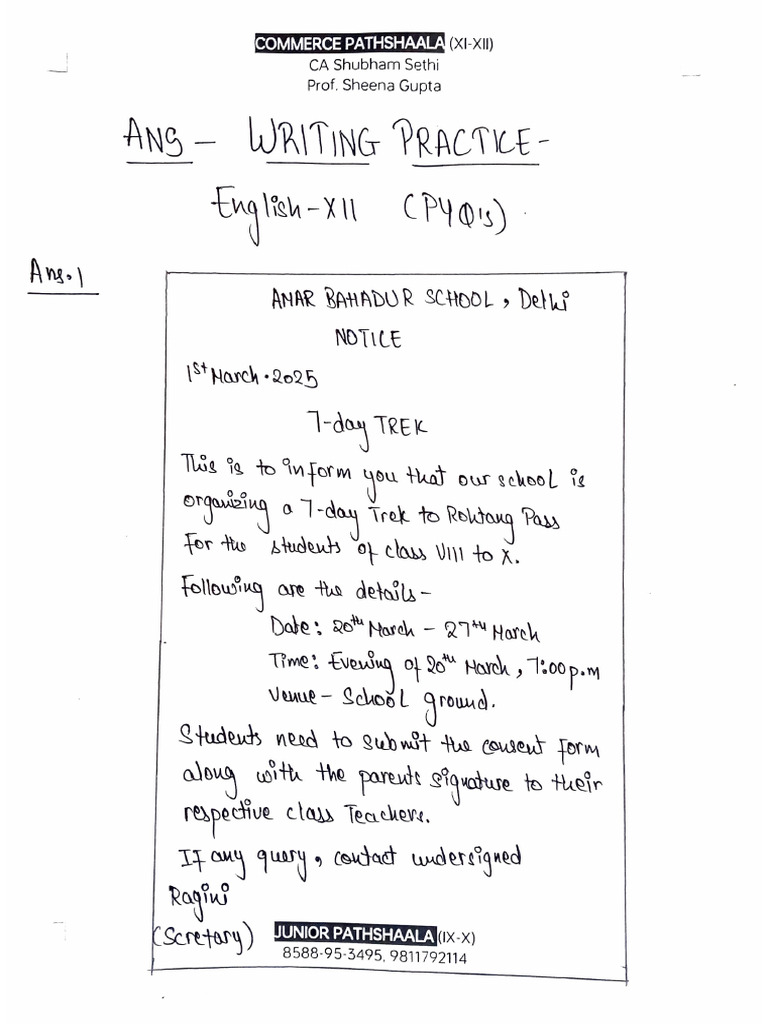 COMMERCE PATHSHAALA (XI-XII)
CA Shubham Sethi
Prof. Sheena Gupta
ANS - WRITING PRACTICE -
English-XII (PYQ's).
Ans.1
AMAR BAHADUR SCHOOL, Delhi
NOTICE
1st March.2025
7-day TREK
This is to inform you that our school is
organizing a 7-day Trek to Rohtang Pass
for the students of class VIII to X.
Following are the details-
Date: 20th March - 27th March
Time: Evening of 20th March, 7:00 p.m
Venue - School ground.
Students need to submit the consent form
along with the parents signature to their
respective class Teachers.
If any query, contact undersigned
Ragini
(Scretary)
JUNIOR PATHSHAALA (IX-X)
8588-95-3495, 9811792114